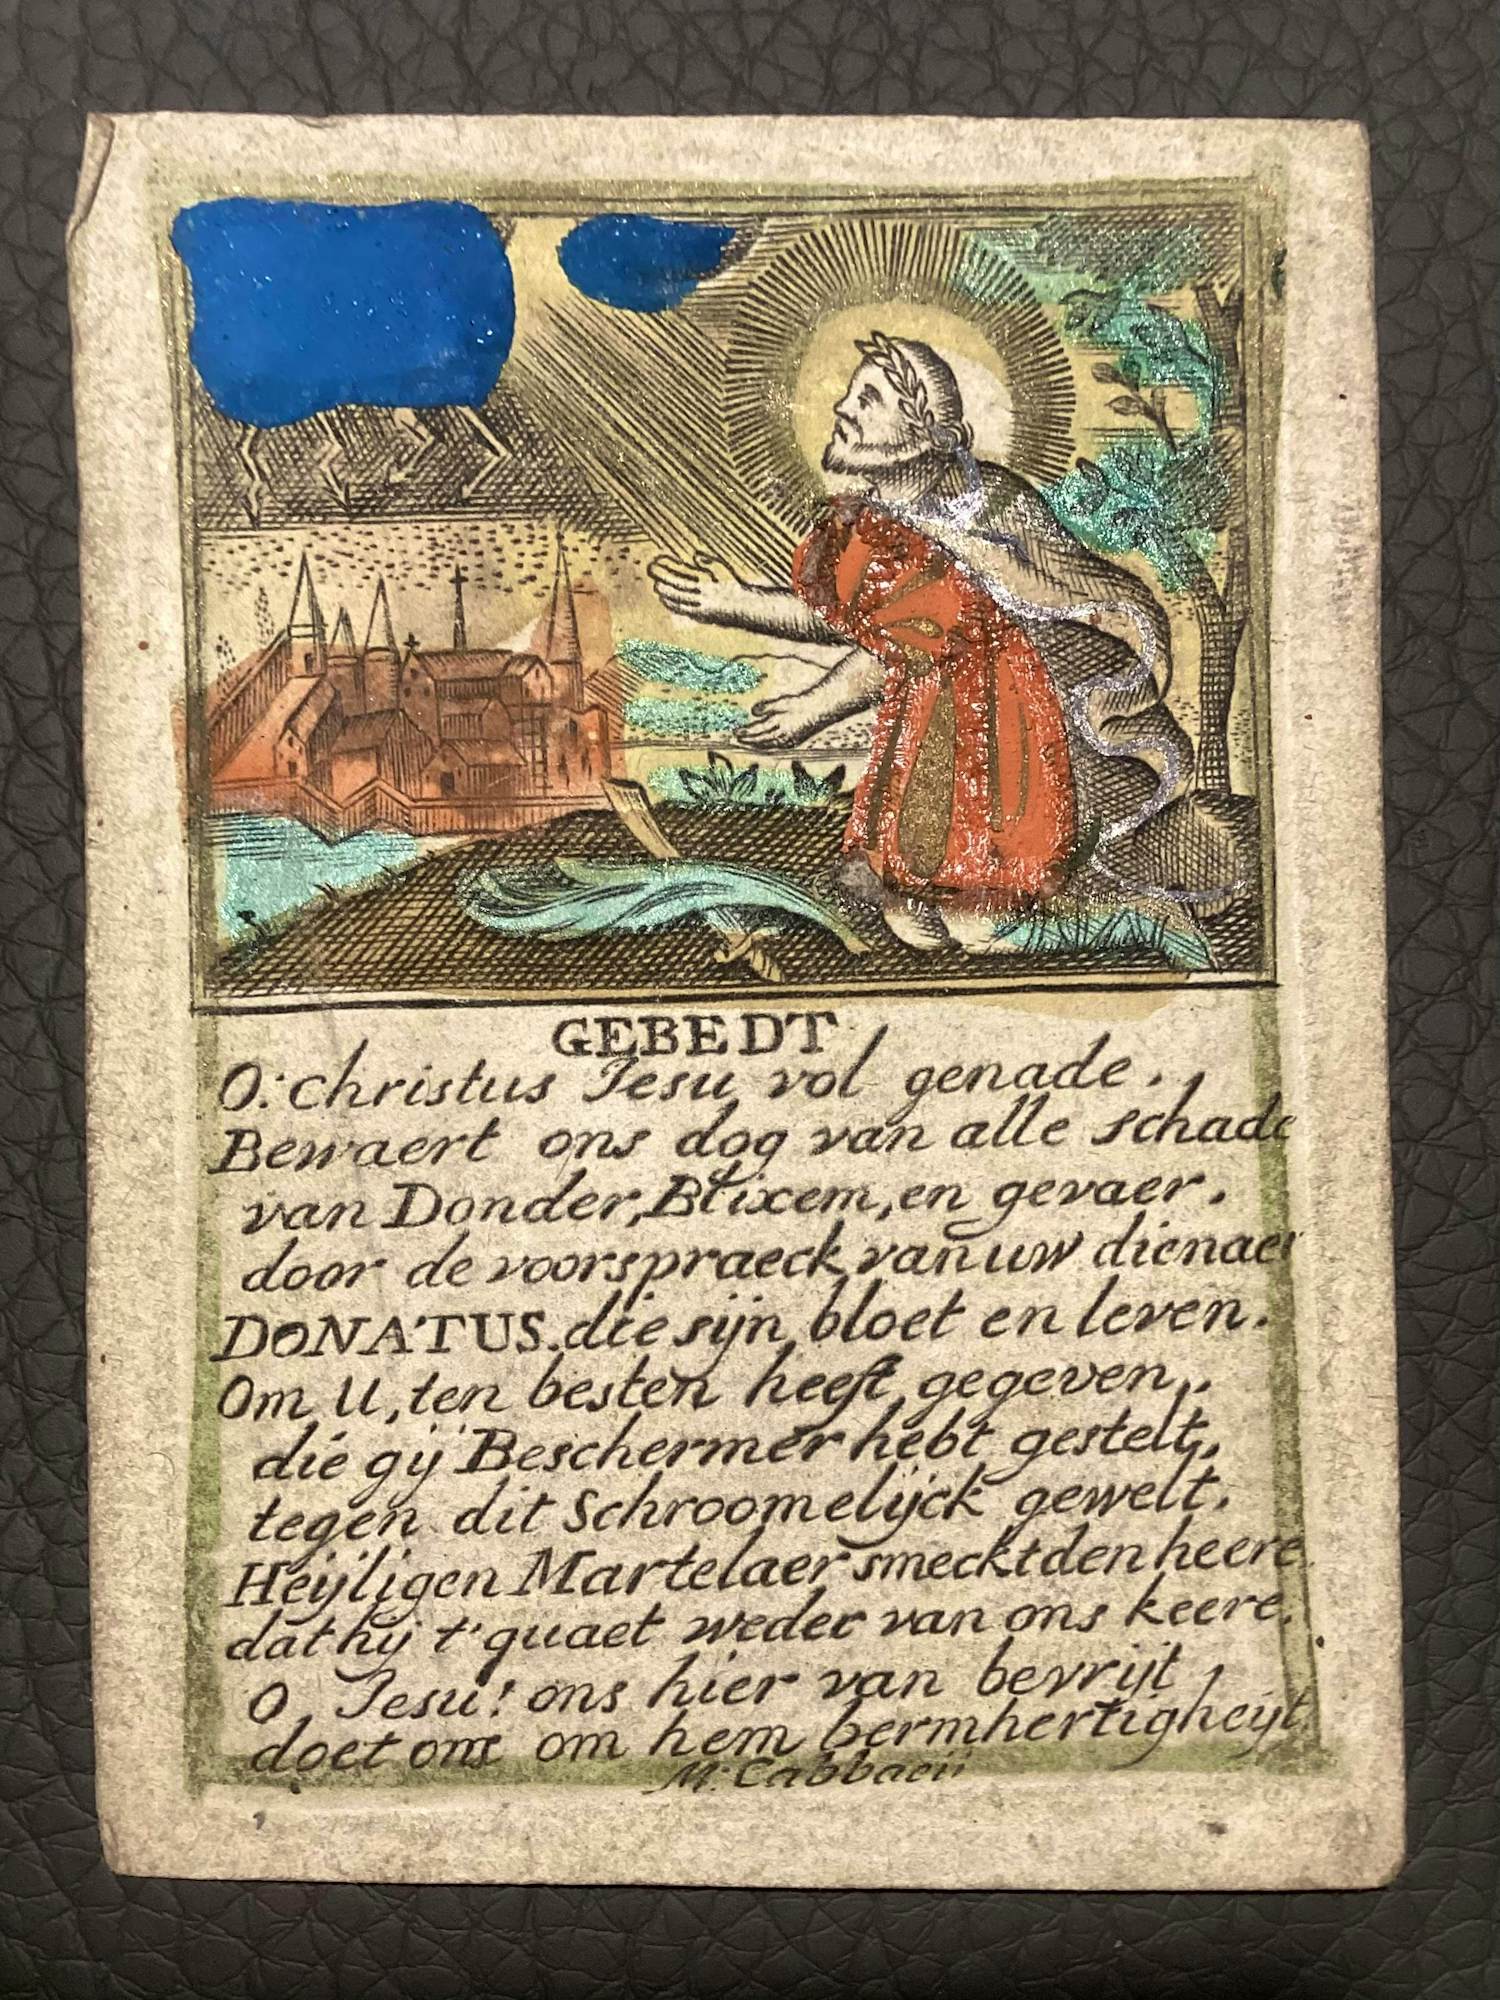 GEBEDT
O: christus Iesu vol genade.,
Bewaert ons dog van alle schade
van Donder, Blixem, en gevaer.
door de voorspraeck van uw dienaer
DONATUS. die sijn bloet en leven.
Om U, ten besten heeft gegeven,.
die gij Beschermer hebt gestelt,
tegen dit Schroomelijck gewelt.
Heijligen Martelaer smeckt den heere.
dat hij t'quaet weder van ons keere.
O, Iesu! ons hier van bevrijt,
doet ons om hem bermhertigheijt.
M: Cabbaeii